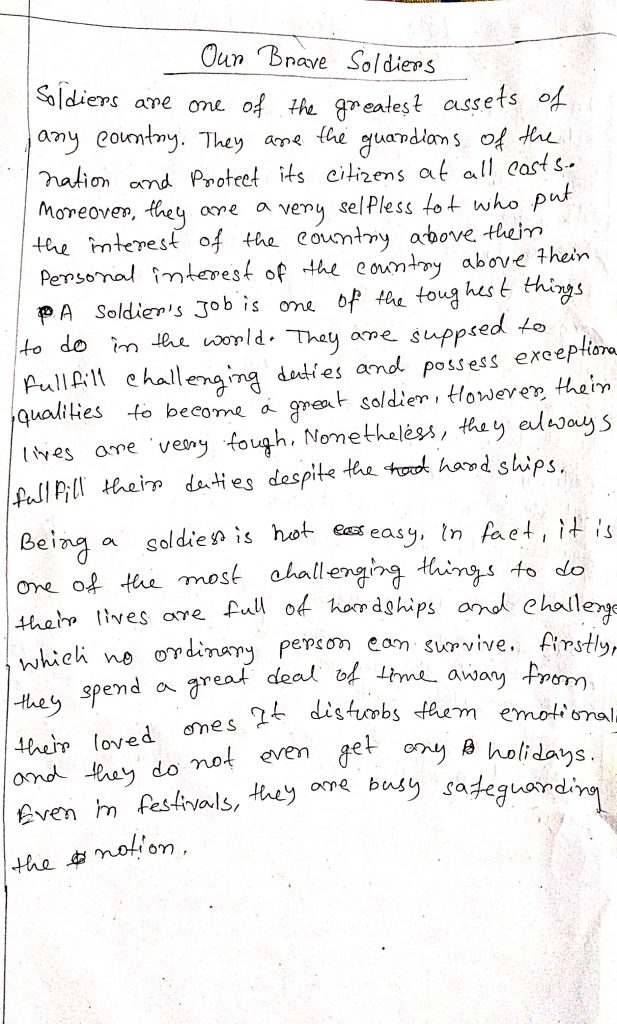 Our Brave Soldiers
Soldiers are one of the greatest assets of
any country. They are the guardians of the
nation and Protect its citizens at all costs.
Moreover, they are a very selfless lot who put
the interest of the country above their
Personal interest of the country above their
A Soldier's Job is one of the toughest things
to do in the world. They are suppsed to
fullfill challenging duties and possess exceptiona
qualities to become a great soldier, However, their
lives are very tough. Nonetheless, they always
fullfill their duties despite the hardships.
Being a soldier is not easy, in fact, it is
one of the most challenging things to do
their lives are full of hardships and challenge
which no ordinary person can survive. firstly,
they spend a great deal of time away from
their loved ones It disturbs them emotional
and they do not even get any holidays.
Even in festivals, they are busy safeguarding
the nation.